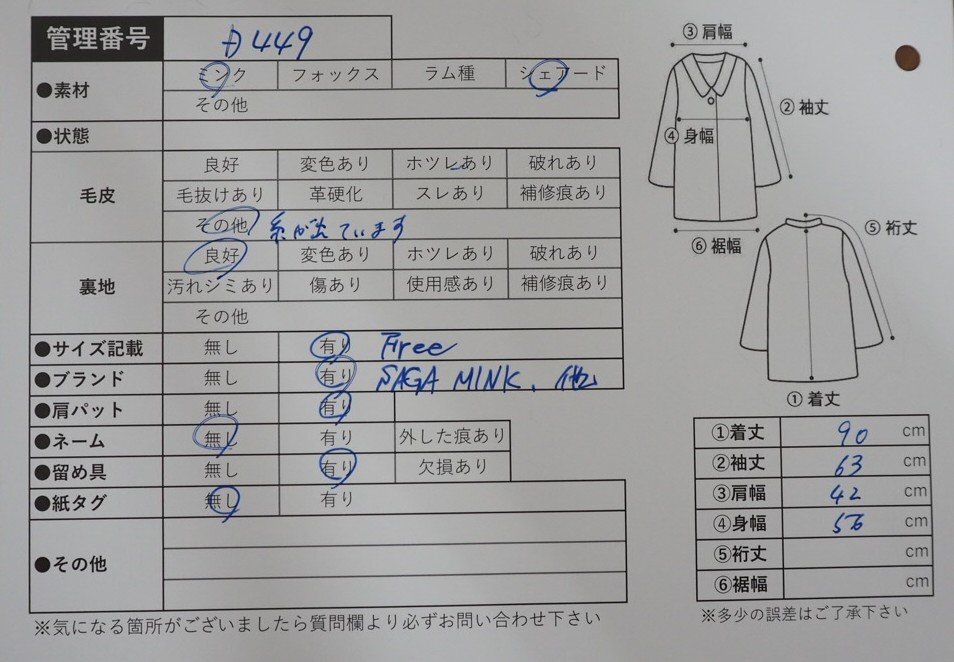 管理番号 D449
●素材 ミンク フォックス ラム種 シェアード
その他
●状態
毛皮 良好 変色あり ホツレあり 破れあり
毛抜けあり 革硬化 スレあり 補修痕あり
その他 糸が出ています
裏地 良好 変色あり ホツレあり 破れあり
汚れシミあり 傷あり 使用感あり 補修痕あり
その他
●サイズ記載 無し 有り Free
●ブランド 無し 有り SAGA MINK、他
●肩パット 無し 有り
●ネーム 無し 有り 外した痕あり
●留め具 無し 有り 欠損あり
●紙タグ 無し 有り
●その他
※気になる箇所がございましたら質問欄より必ずお問い合わせ下さい
③肩幅
②袖丈
④身幅
⑥裾幅
⑤裄丈
①着丈
①着丈 90 cm
②袖丈 63 cm
③肩幅 42 cm
④身幅 56 cm
⑤裄丈 cm
⑥裾幅 cm
※多少の誤差はご了承下さい